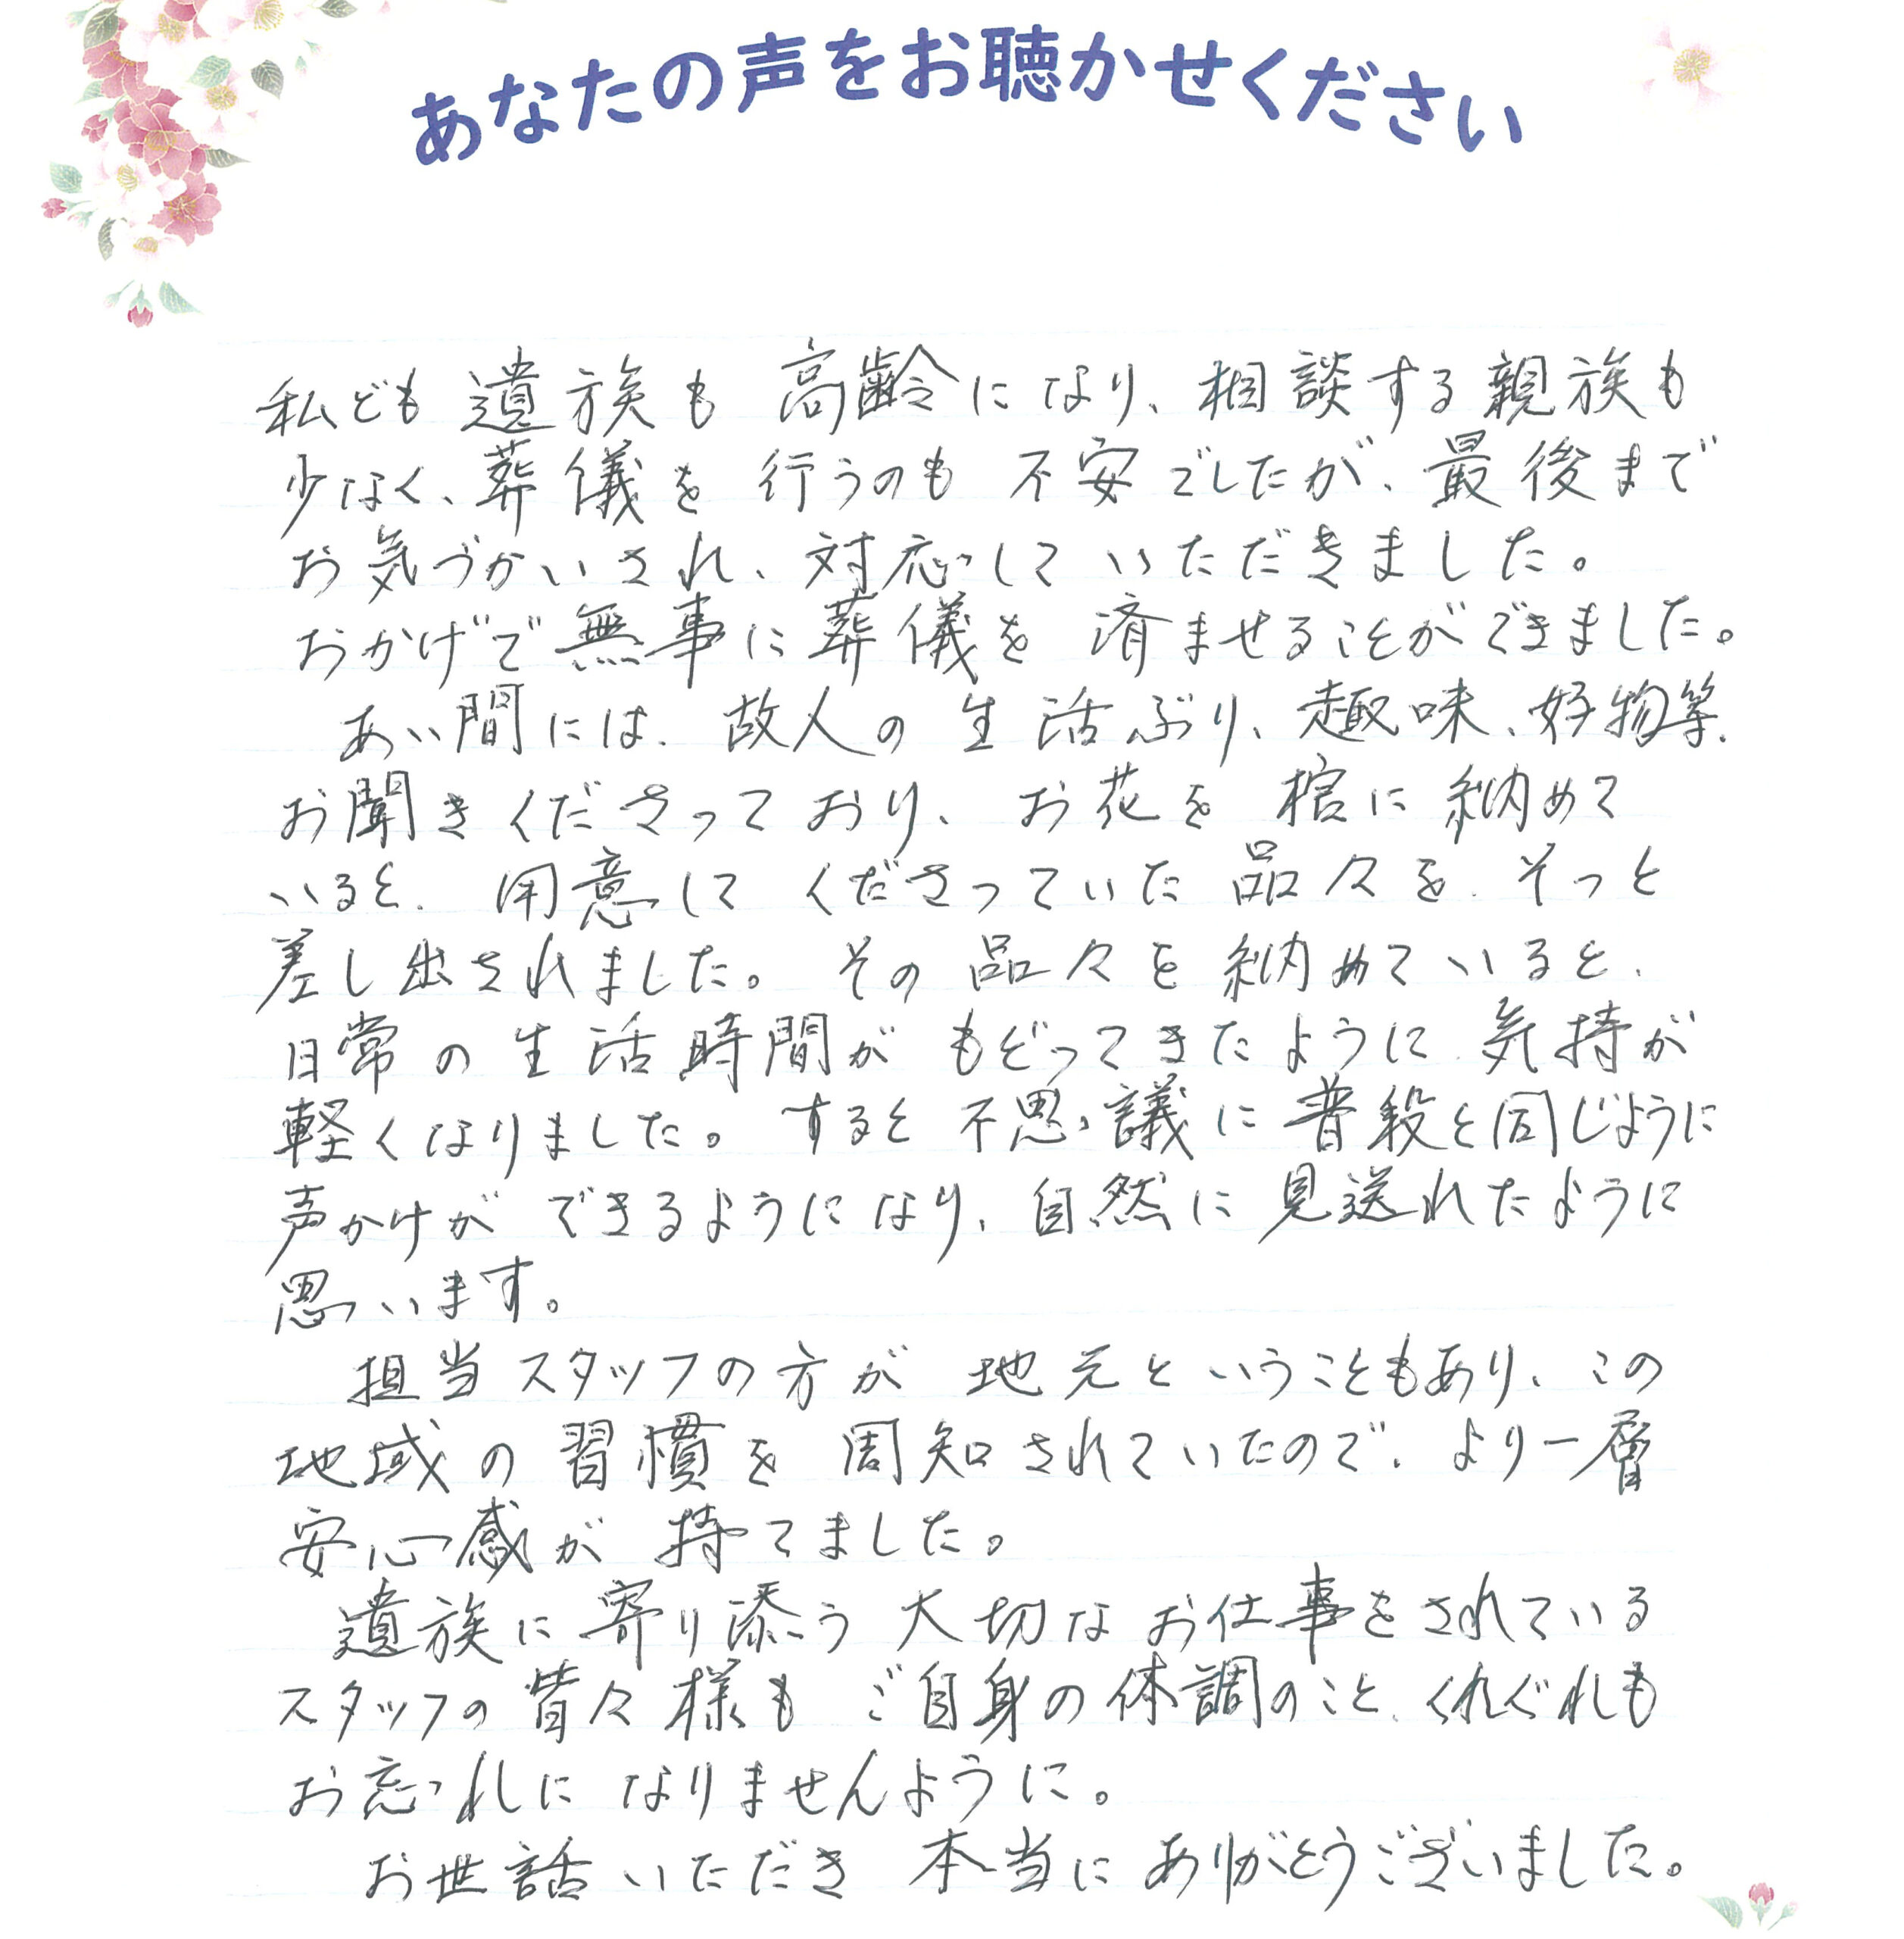 あなたの声をお聴かせください
私ども遺族も高齢になり、相談する親族も
少なく、葬儀を行うのも不安でしたが、最後まで
お気づかいされ、対応していただきました。
おかげで無事に葬儀を済ませることができました。
あい間には、故人の生活ぶり、趣味、好物等、
お聞きくださっており、お花を棺に納めて
いると、用意してくださっていた品々を、そっと
差し出されました。その品々を納めていると、
日常の生活時間がもどってきたように、気持が
軽くなりました。すると不思議に普段と同じように
声かけができるようになり、自然に見送れたように
思います。
担当スタッフの方が地元ということもあり、この
地域の習慣を周知されていたので、より一層
安心感が持てました。
遺族に寄り添う大切なお仕事をされている
スタッフの皆々様もご自身の体調のこと、くれぐれも
お忘れになりませんように。
お世話いただき本当にありがとうございました。